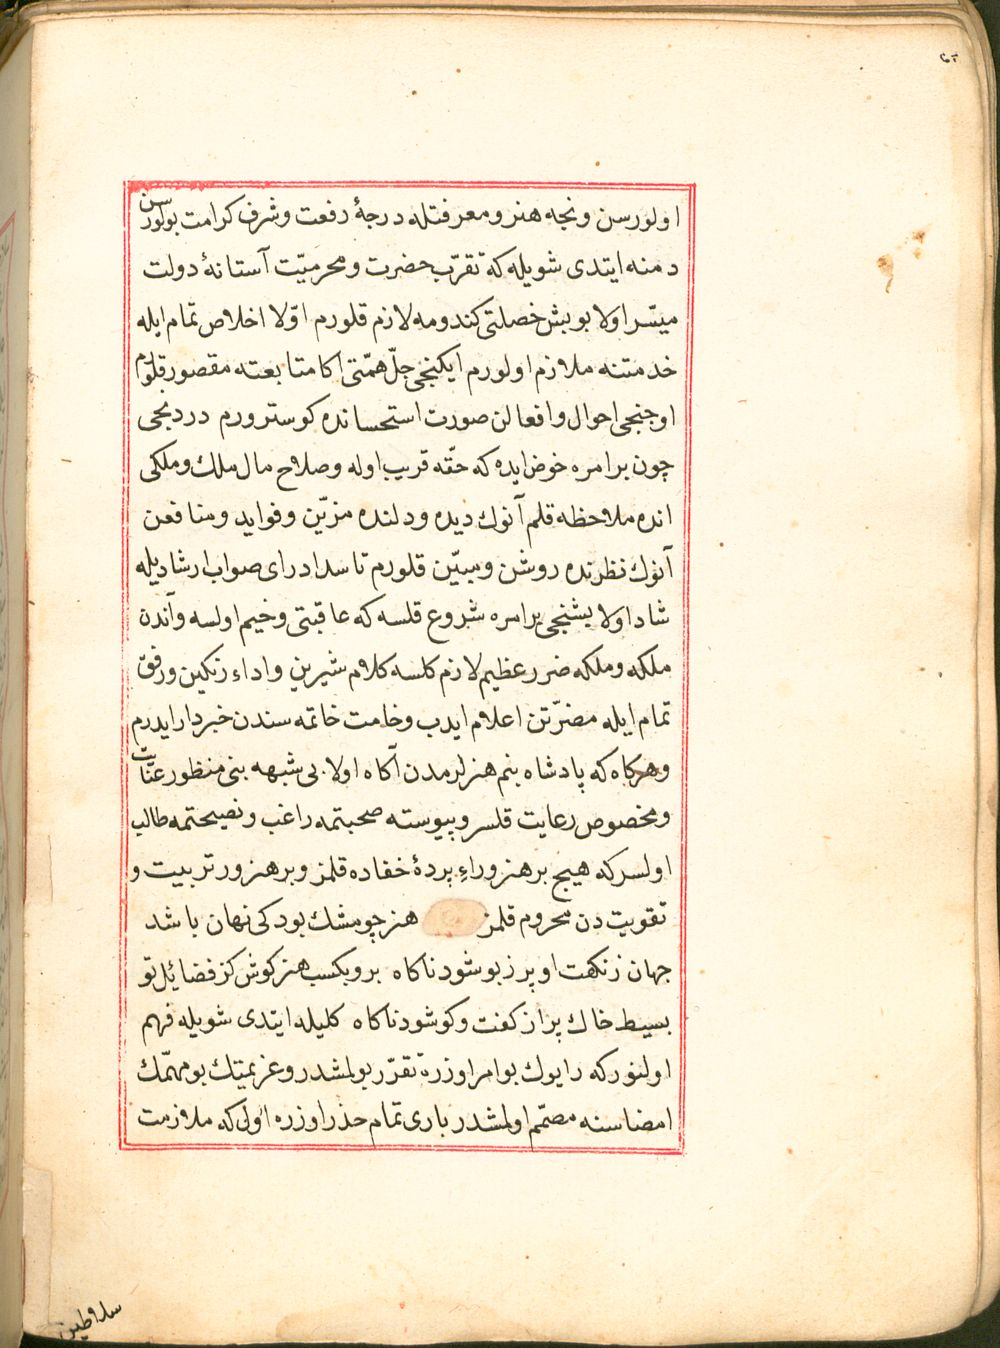 اولورسن ونجه هنر ومعرفتله درجهٔ رفعت وشرف كرامت بولورسن
دمنه ايتدى شويله كه تقرّب حضرت ومحرميّت آستانهٔ دولت
ميسّر اولا بو بش خصلتى كندومه لازم قلورم اوّلا اخلاص تمام ايله
خدمتنه ملازم اولورم ايكنجى جلّ همّتى اكا متابعته مقصور قلورم
اوجنجى احوال وافعالن صورت استحسانده كوسترورم دردنجى
چون بر امره خوض ايده كه حقّه قريب اوله وصلاح مال ملك وملكى
انده ملاحظه قلم آنوك ديده ودلنده مزيّن وفوايد ومنافعن
آنوك نظرنده روشن ومبيّن قلورم تا سداد راى صواب ارشاديله
شاد اولا بشنجى بر امره شروع قلسه كه عاقبتى وخيم اولسه وآندن
ملكه وملكه ضرر عظيم لازم كلسه كلام شيرين واداء رنكين ورفق
تمام ايله مضرّتن اعلام ايدب وخامت خاتمه سندن خبردار ايدرم
وهركاه كه پادشاه بنم هنرلرمدن آكاه اولا بى شبهه بنى منظور عنايت
ومخصوص رعايت قلسر وپيوسته صحبتمه راغب ونصيحتمه طالب
اولسر كه هيچ بر هنر وراءِ پردهٔ خفاده قلمز وبر هنرور تربيت و
تقويت دن محروم قلمز هنر چو مشك بود كى نهان باشد
جهان ز نكهت او پر ز بو شود ناكاه برو بكسب هنر كوش كز فضائل تو
بسيط خاك پر از كفت وكو شود ناكاه كليله ايتدى شويله فهم
اولنور كه رايوك بو امر اوزره تقرّر بولمشدر وعزيمتك بو مهمّك
امضاسنه مصمّم اولمشدر بارى تمام حذر اوزره اولى كه ملازمت
سلاطين